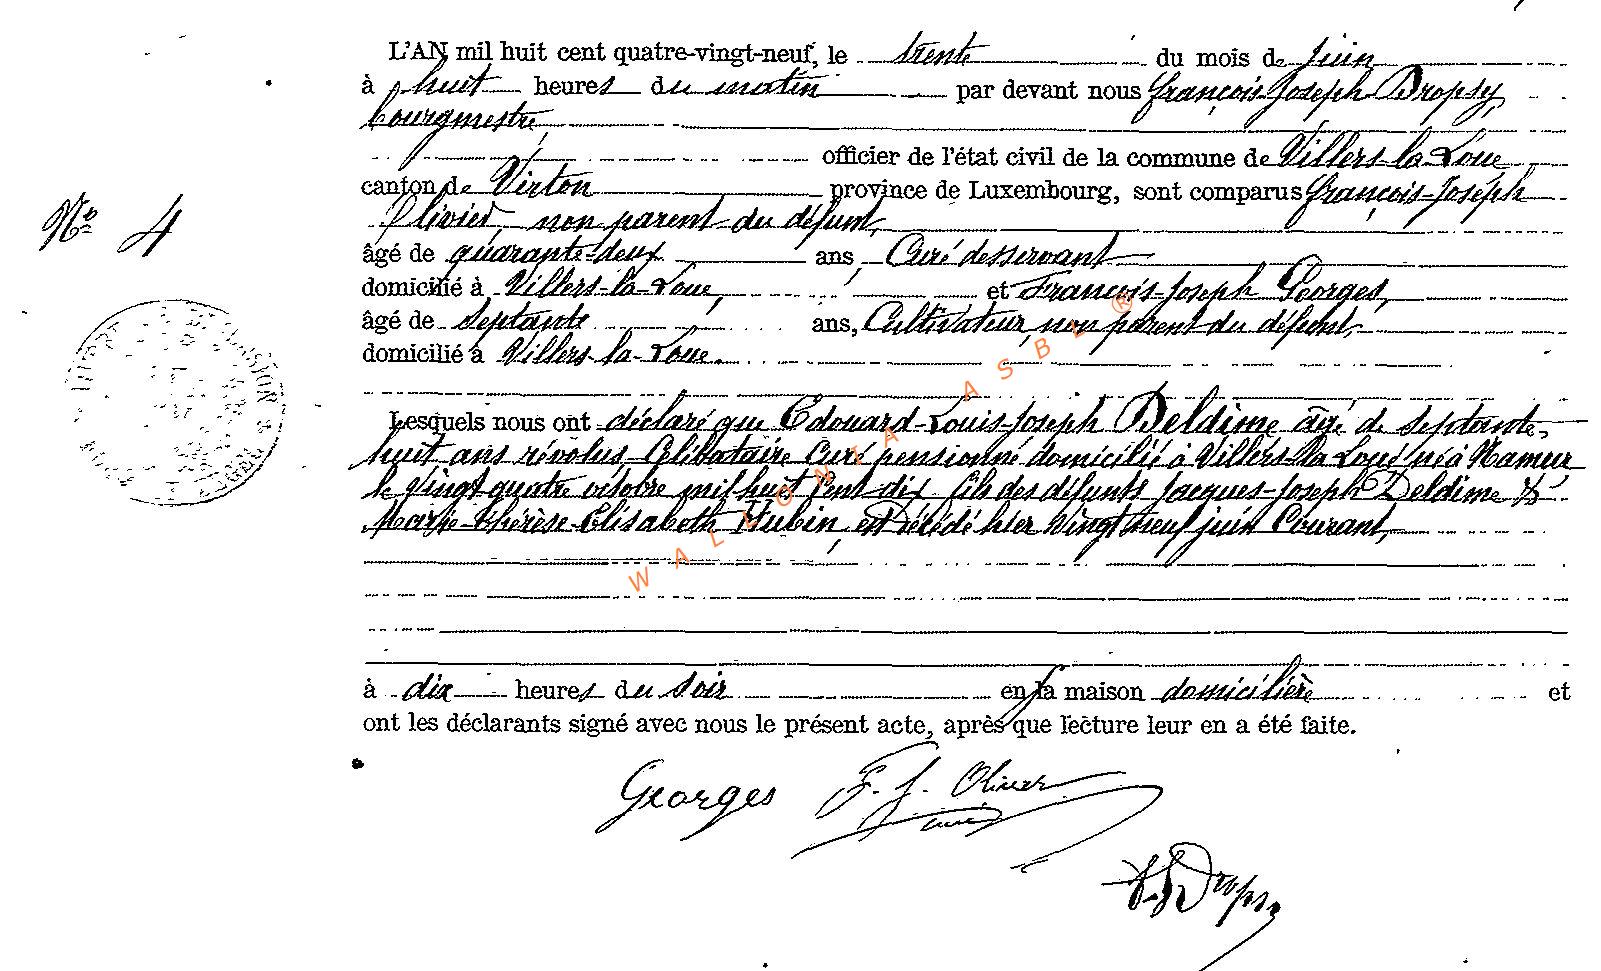 L'AN mil huit cent quatre-vingt-neuf, le trente du mois de juin
à huit heures du matin par devant nous françois-Joseph Dropsy,
bourgmestre,
officier de l'état civil de la commune de Villers-la-Loue
canton de Virton province de Luxembourg, sont comparus françois-Joseph
Olivier, non parent du défunt,
N° 4
âgé de quarante-deux ans, Curé desservant
domicilié à Villers-la-Loue, et François-Joseph Georges,
âgé de septante ans, Cultivateur, non parent du défunt,
domicilié à Villers-la-Loue.
Lesquels nous ont déclaré que Edouard-Louis-Joseph Deldime âgé de septante-
huit ans révolus Célibataire Curé pensionné domicilié à Villers-la-Loue né à Namur
le Vingt quatre octobre mil huit Cent dix fils des défunts Jacques-Joseph Deldime &
Marie-Thérèse-Elisabeth Hubin, est décédé hier Vingt neuf juin Courant,
WALLONIA ASBL ®
à dix heures du soir en sa maison domicilière et
ont les déclarants signé avec nous le présent acte, après que lecture leur en a été faite.
Georges F. J. Olivier
curé
F. J. Dropsy